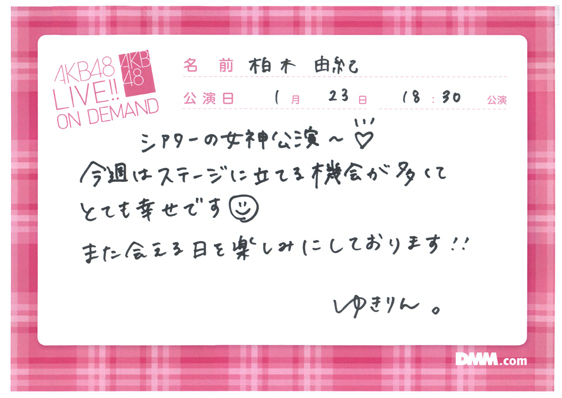 AKB48
LIVE!!
ON DEMAND
AKB
48
名前 柏木 由紀
公演日 1月 23日 18:30 公演
シアターの女神公演~♡
今週はステージに立てる機会が多くて
とても幸せです
また会える日を楽しみにしております!!
ゆきりん。
DMM.com